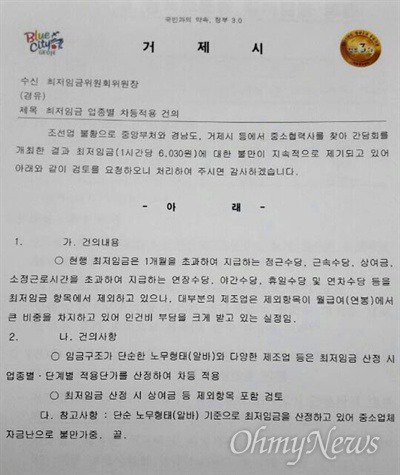 국민과의 약속, 정부 3.0
Blue City
거 제 시
수신 최저임금위원회위원장
(경유)
제목 최저임금 업종별 차등적용 건의
조선업 불황으로 중앙부처와 경남도, 거제시 등에서 중소협력사를 찾아 간담회를
개최한 결과 최저임금(1시간당 6,030원)에 대한 불만이 지속적으로 제기되고 있어
아래와 같이 검토를 요청하오니 처리하여 주시면 감사하겠습니다.
- 아 래 -
1. 가. 건의내용
○ 현행 최저임금은 1개월을 초과하여 지급하는 정근수당, 근속수당, 상여금,
소정근로시간을 초과하여 지급하는 연장수당, 야간수당, 휴일수당 및 연차수당 등을
최저임금 항목에서 제외하고 있으나, 대부분의 제조업은 제외항목이 월급여(연봉)에서
큰 비중을 차지하고 있어 인건비 부담을 크게 받고 있는 실정임.
2. 나. 건의사항
○ 임금구조가 단순한 노무형태(알바)와 다양한 제조업 등은 최저임금 산정 시
업종별·단계별 적용단가를 산정하여 차등 적용
○ 최저임금 산정 시 상여금 등 제외항목 포함 검토
다. 참고사항 : 단순 노무형태(알바) 기준으로 최저임금을 산정하고 있어 중소업체
자금난으로 불만가중. 끝.
OhmyNews